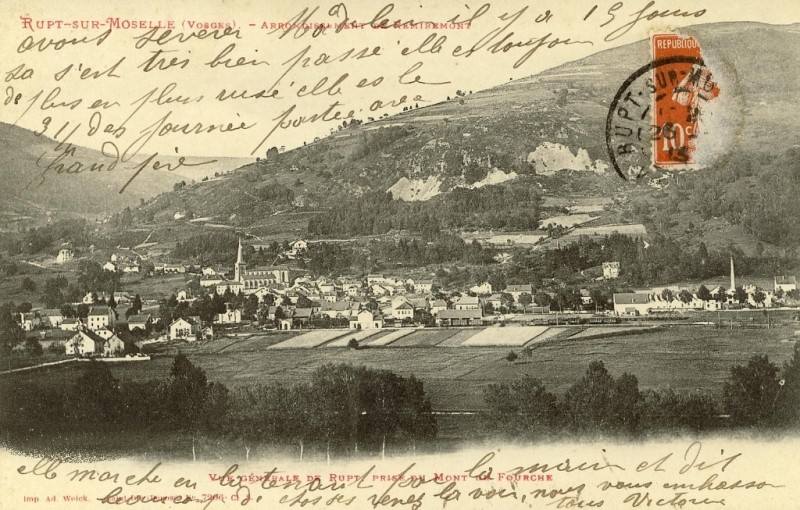 RUPT-SUR-MOSELLE (VOSGES). - ARRONDISSEMENT DE REMIREMONT
il y a 15 jours
avons sevrer
sa s'est très bien passé elle est toujour
de plus en plus rusé elle est le
des journée partie avec
grand père
REPUBLIQUE
10 c
RUPT-SUR-MO
VUE GÉNÉRALE DE RUPT, PRISE DU MONT DE FOURCHE
elle marche en la tenant par la main et dit
de choses venez la voir, nous vous embrasson
tous Victorine
Imp. Ad. Weick.